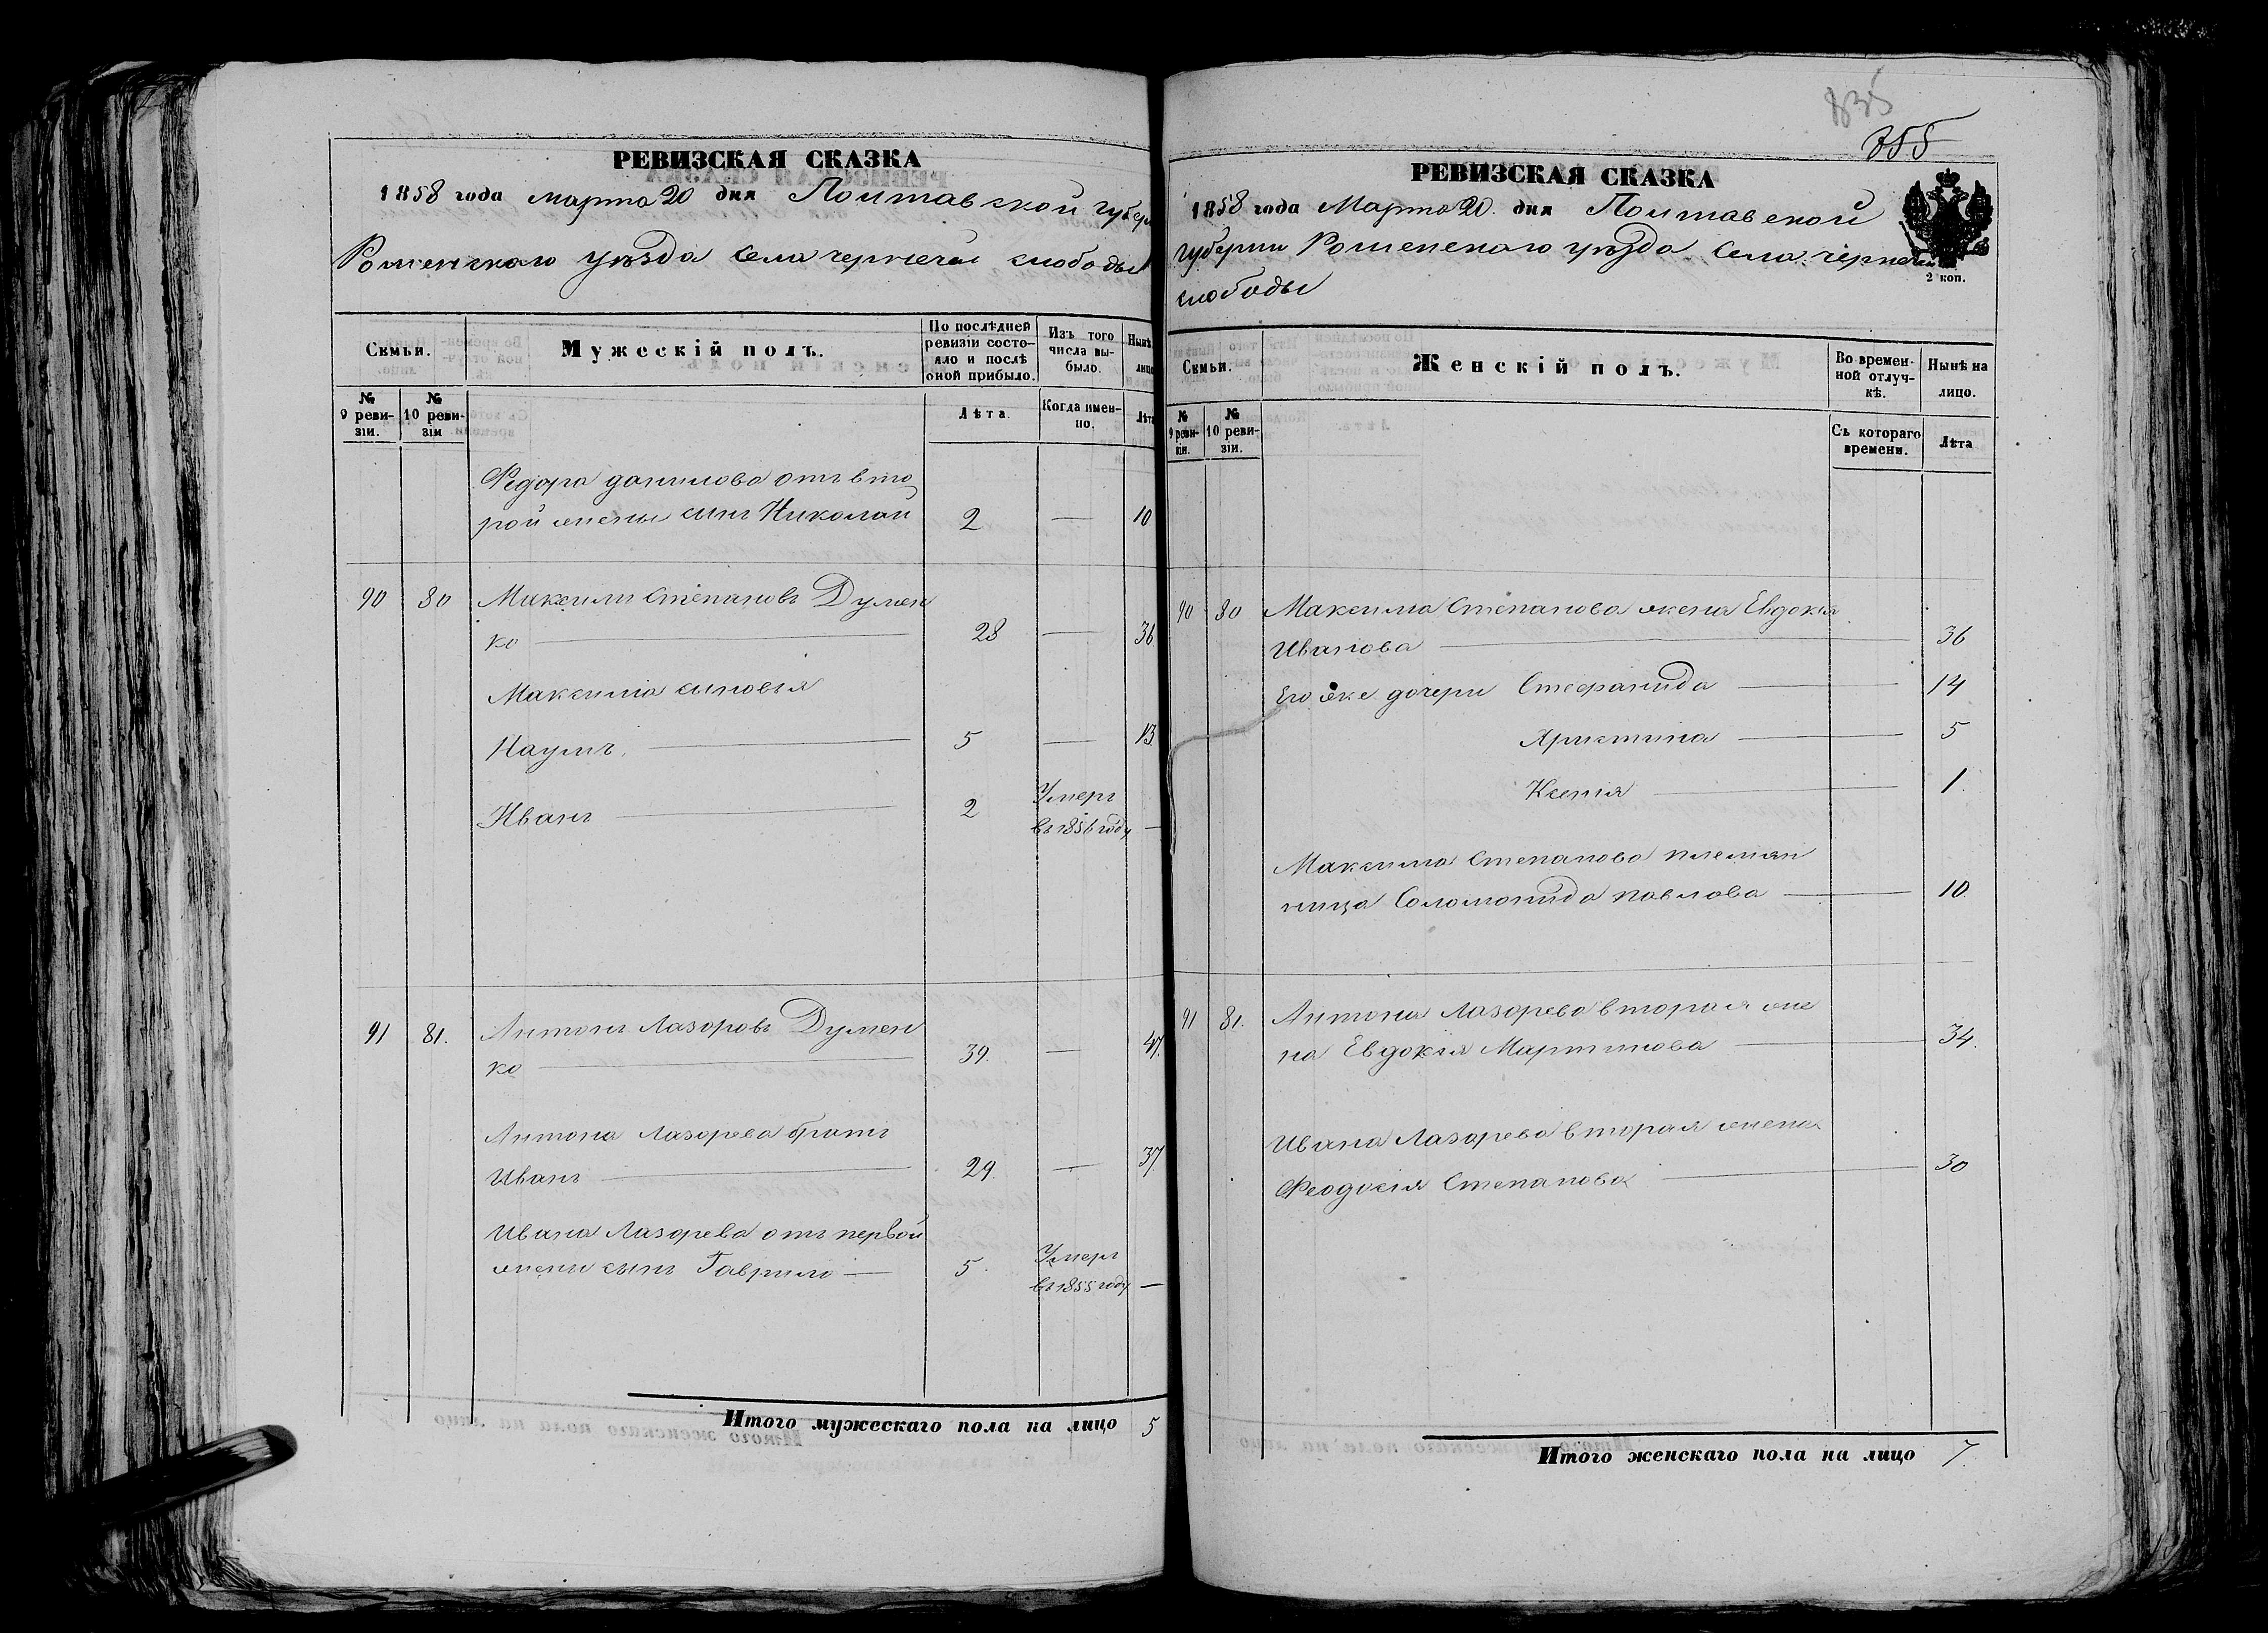 РЕВИЗСКАЯ СКАЗКА
1858 года Марта 20 дня Полтавской губер
Роменскаго уѣзда Села чернечей слободы
Семьи.
Мужескій полъ.
По послѣдней ревизіи состояло и послѣ оной прибыло.
Изъ того числа выбыло.
Нынѣ лицо
№ 9 ревизіи.
№ 10 ревизіи
Лѣта.
Когда именно.
Лѣта
Федора данилова отъ вто
рой жены сынъ Николай 2 — 10
90 80 Максимъ Степановъ Думен
ко — 28 — 36
Максима сыновья
Наумъ. — 5 — 13
Иванъ — 2 Умеръ
въ 1856 году —
91 81. Антонъ Лазоровъ Думен
ко — 39. — 47.
Антона Лазорева братъ
Иванъ — 29. — 37
Ивана Лазорева отъ первой
жены сынъ Гаврило — 5. Умеръ
въ 1855 году —
Итого мужескаго пола на лицо 5
835
355
РЕВИЗСКАЯ СКАЗКА
1858 года Марта 20. дня Полтавской
губерни Роменскаго уѣзда Села чернечей
слободы
2 коп.
Семьи.
Женскій полъ.
Во временной отлучкѣ.
Нынѣ на лицо.
№ 9 ревизіи.
№ 10 ревизіи.
Съ котораго времени.
Лѣта
90 80 Максима Степанова жена Евдокія
Иванова — 36
Его же дочери Стефанида — 14
Христина — 5
Ксенія — 1.
Максима Степанова племян
ница Соломонида Павлова — 10.
91 81. Антона Лазорева вторая же
на Евдокія Мартинова — 34.
Ивана Лазорева вторая жена
Феодосія Степанова — 30
Итого женскаго пола на лицо 7.